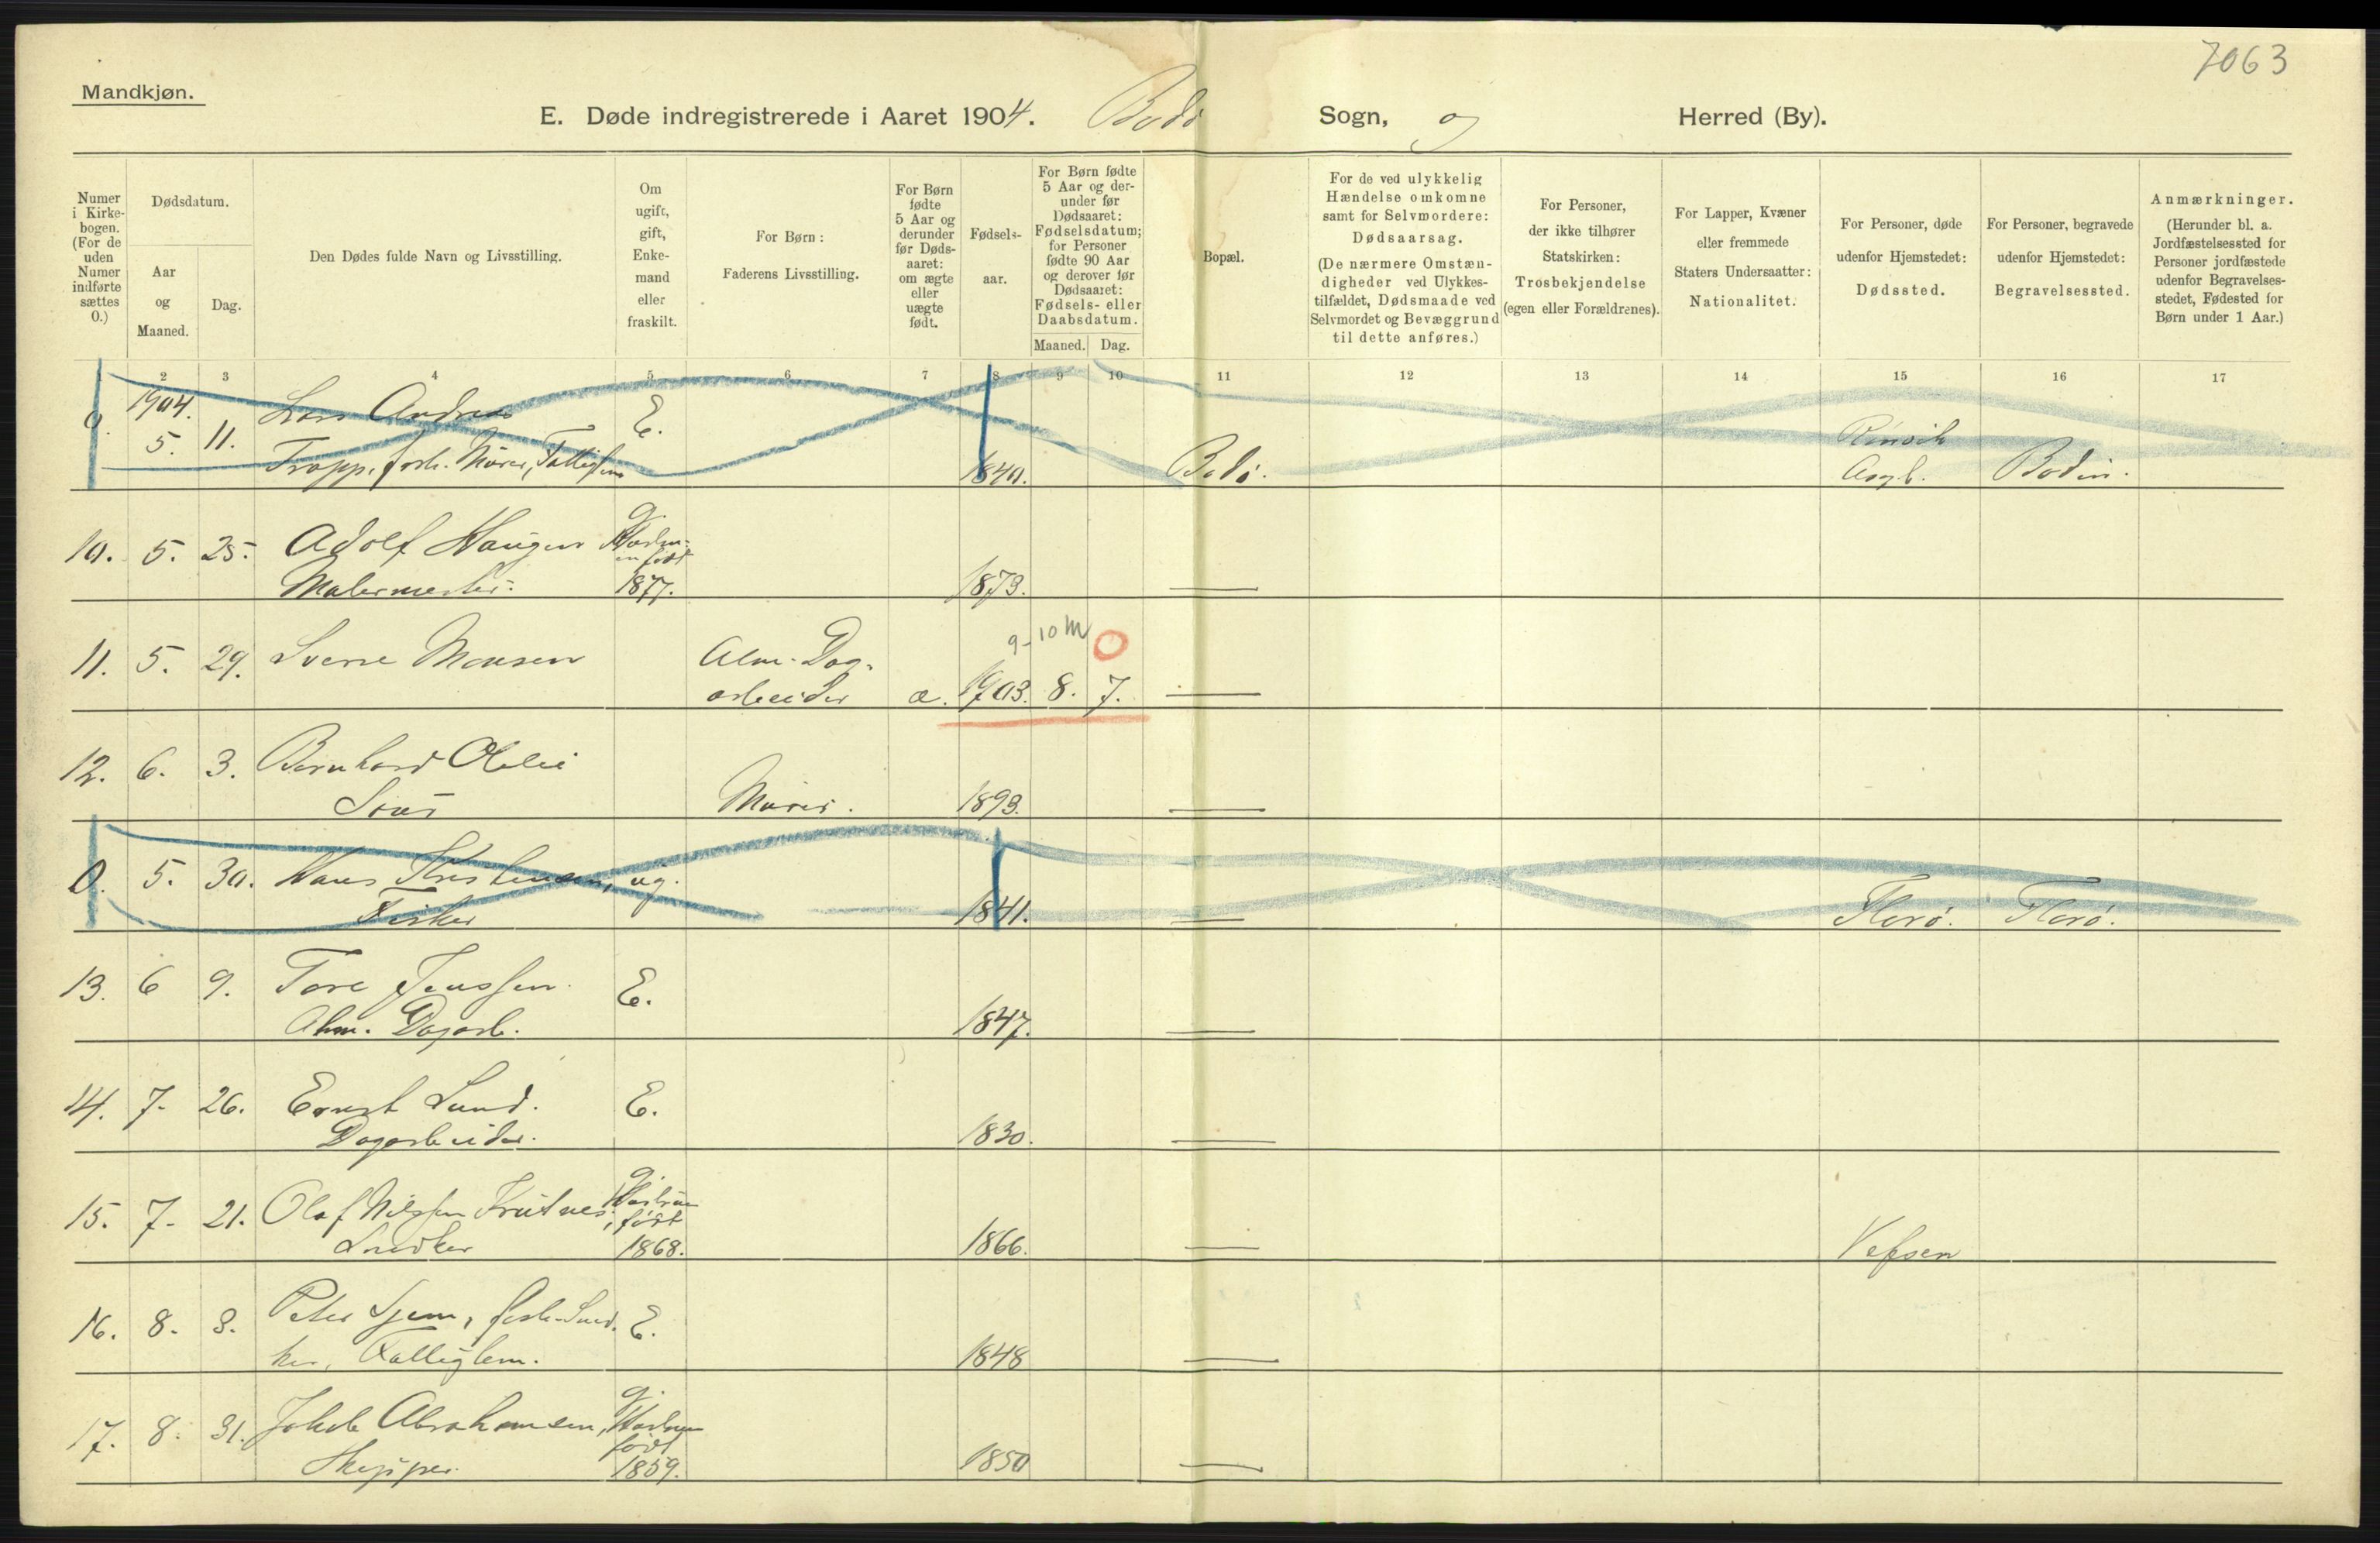 7063
Mandkjøn.
E. Døde indregistrerede i Aaret 1904. Bodø Sogn, og Herred (By).
Numer i Kirke-bogen. (For de uden Numer indførte sættes 0.)
Dødsdatum.
Aar og Maaned.
Dag.
Den Dødes fulde Navn og Livsstilling.
Om ugift, gift, Enke-mand eller fraskilt.
For Børn: Faderens Livsstilling.
For Børn fødte 5 Aar og derunder før Døds-aaret: om ægte eller uægte født.
Fødsels-aar.
For Børn fødte 5 Aar og der-under før Dødsaaret: Fødselsdatum; for Personer fødte 90 Aar og derover før Dødsaaret: Fødsels- eller Daabsdatum.
Maaned. Dag.
Bopæl.
For de ved ulykkelig Hændelse omkomne samt for Selvmordere: Dødsaarsag. (De nærmere Omstæn-digheder ved Ulykkes-tilfældet, Dødsmaade ved Selvmordet og Bevæggrund til dette anføres.)
For Personer, der ikke tilhører Statskirken: Trosbekjendelse (egen eller Forældrenes).
For Lapper, Kvæner eller fremmede Staters Undersaatter: Nationalitet.
For Personer, døde udenfor Hjemstedet: Dødssted.
For Personer, begravede udenfor Hjemstedet: Begravelsessted.
Anmærkninger. (Herunder bl. a. Jordfæstelsessted for Personer jordfæstede udenfor Begravelses-stedet, Fødested for Børn under 1 Aar.)
2 3 4 5 6 7 8 9 10 11 12 13 14 15 16 17
1904. Lars Andreas E. Rønvik
0. 5. 11. Tropp, forh. Murer, Fattiglem 1840. Bodø. Asyl. Bodin.
10. 5. 25. Adolf Haugen g. Hustruen født
Malermester. 1877. 1873. —
9-10 M
11. 5. 29. Sverre Monsen Alm. Dag-
arbeider æ. 1903. 8. 7. —
12. 6. 3. Bernhard Olelei
Murer. 1893. —
0. 5. 30. Hans Kristensen, ug.
Fisker 1841. — Florø. Florø.
13. 6 9. Tore Jenssen. E.
Alm. Dagarb. 1847. —
14. 7. 26. Ernst Lund. E.
Dagarbeider. 1830. —
15. 7. 21. Olaf Nilssen Krutnes, g. Hustru født
Snedker 1868. 1866. — Vefsen
16. 8. 3. Peter Sjem, forh. Sned- E.
ker, Fattiglem. 1848 —
17. 8. 31. Jakob Abrahamsen, g. Hustruen født
Skipper 1859. 1850 —